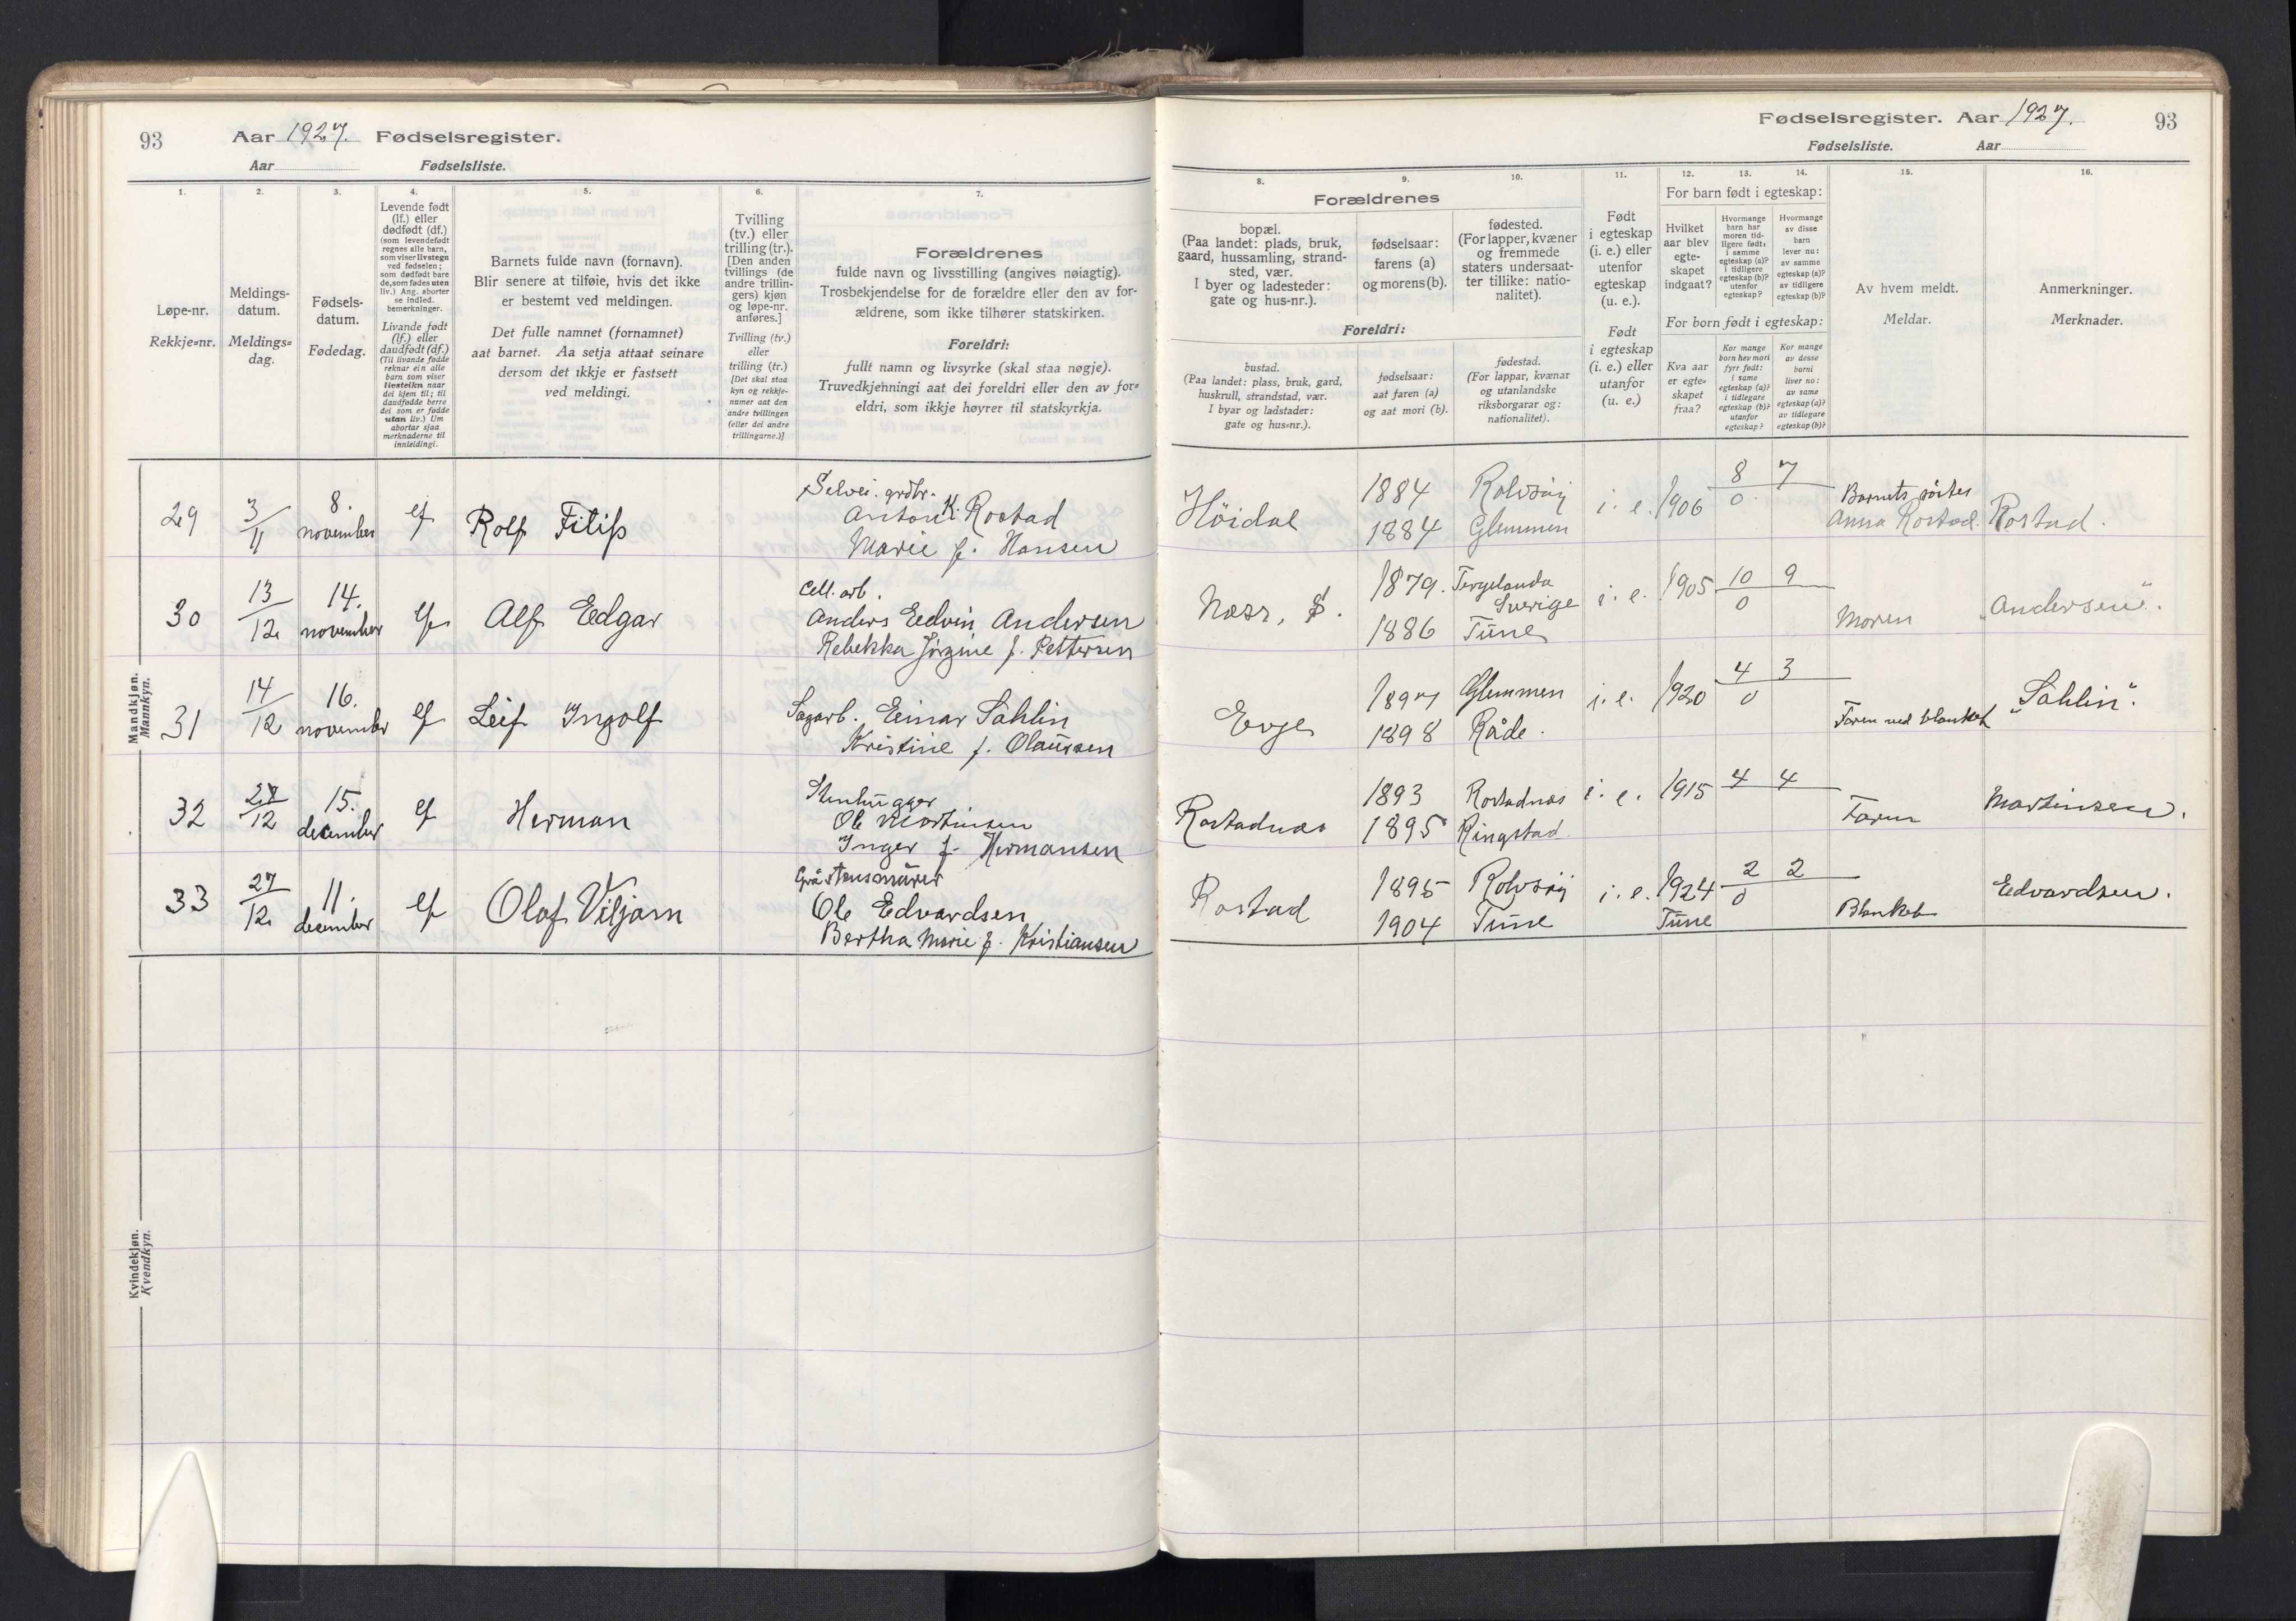 93 Aar 1927. Fødselsregister.
Aar Fødselsliste.
1. 2. 3. 4. 5. 6. 7.
Løpe-nr.
Rekkje=nr.
Meldings-
datum.
Meldings=
dag.
Fødsels-
datum.
Fødedag.
Levende født
(lf.) eller
dødfødt (df.)
(som levendefødt
regnes alle barn,
som viser livstegn
ved fødselen;
som dødfødt bare
de, som fødes uten
liv.) Ang. aborter
se indled.
bemerkninger.
Livande født
(lf.) eller
daudfødt (df.)
(Til livande fødde
reknar ein alle
barn som viser
livsteikn naar
dei kjem til; til
daudfødde berre
dei som er fødde
utan liv.) Um
abortar sjaa
merknaderne til
innleidingi.
Barnets fulde navn (fornavn).
Blir senere at tilføie, hvis det ikke
er bestemt ved meldingen.
Det fulle namnet (fornamnet)
aat barnet. Aa setja attaat seinare
dersom det ikkje er fastsett
ved meldingi.
Tvilling
(tv.) eller
trilling (tr.).
[Den anden
tvillings (de
andre trillin-
gers) kjøn
og løpe-nr.
anføres.]
Tvilling (tv.)
eller
trilling (tr.)
[Det skal staa
kyn og rekkje-
numer aat den
andre tvillingen
(eller dei andre
trillingarne.)]
Forældrenes
fulde navn og livsstilling (angives nøiagtig).
Trosbekjendelse for de forældre eller den av for-
ældrene, som ikke tilhører statskirken.
Foreldri:
fullt namn og livsyrke (skal staa nøgje).
Truvedkjenningi aat dei foreldri eller den av for=
eldri, som ikkje høyrer til statskyrkja.
Mandkjøn.
Mannkyn.
29 3/11 8. november lf Rolf Filip
Selvei. grdbr.
Anton K. Rostad
Marie f. Hansen
30 13/12 14. november lf Alf Edgar
Cell. arb.
Anders Edvin Andersen
Rebekka Jörgine f. Pettersen
31 14/12 16. november lf Leif Ingolf
Sagarb. Einar Sahlin
Kristine f. Olaussen
32 27/12 15. december lf Herman
Stenhugger
Ole Martinsen
Inger f. Hermansen
33 27/12 11. december lf Olaf Viljam
Gråstensmurer
Ole Edvardsen
Bertha Marie f. Kristiansen
Kvindekjøn.
Kvendkyn.
Fødselsregister. Aar 1927. 93
Fødselsliste. Aar
8. 9. 10. 11. 12. 13. 14. 15. 16.
Forældrenes
bopæl.
(Paa landet: plads, bruk,
gaard, hussamling, strand-
sted, vær.
I byer og ladesteder:
gate og hus-nr.).
fødselsaar:
farens (a)
og morens (b).
fødested.
(For lapper, kvæner
og fremmede
staters undersaat-
ter tillike: natio-
nalitet).
Foreldri:
bustad.
(Paa landet: plass, bruk, gard,
huskrull, strandstad, vær.
I byar og ladstader:
gate og hus=nr.).
fødselsaar:
aat faren (a)
og aat mori (b).
fødestad.
(For lappar, kvænar
og utanlandske
riksborgarar og:
nationalitet).
Født
i egteskap
(i. e.) eller
utenfor
egteskap
(u. e.).
Født
i egteskap
(i. e.) eller
utanfor
(u. e.)
For barn født i egteskap:
Hvilket
aar blev
egte-
skapet
indgaat?
Hvormange
barn har
moren tid-
ligere født:
i samme
egteskap (a)?
i tidligere
egteskap (b)?
utenfor
egteskap?
Hvormange
av disse
barn
lever nu:
av samme
egteskap (a)?
av tidligere
egteskap (b)?
For born født i egteskap:
Kva aar
er egte=
skapet
fraa?
Kor mange
born hev mori
fyrr født:
i same
egteskap (a)?
i tidlegare
egteskap (b)?
utanfor
egteskap?
Kor mange
av desse
borni
liver no:
av same
egteskap (a)?
av tidlegare
egteskap (b)?
Av hvem meldt.
Meldar.
Anmerkninger.
Merknader.
Höidal 1884 Rolvsöy i. e. 1906 8 7 Barnets söster
1884 Glemmen 0 Anna Rostad. Rostad.
Næss, S. 1879. Sverige i. e. 1905 10 9
1886 Tune 0 Moren "Andersen".
Evje 1897 Glemmen i. e. 1920 4 3
1898 Råde. 0 Faren ved blanket "Sahlin".
Rostadnæs 1893 Rostadnæs i. e. 1915 4 4
1895 Ringstad. Faren Martinsen.
Rostad 1895 Rolvsöy i. e. 1924 2 2
1904 Tune Tune 0 Blanket Edvardsen.